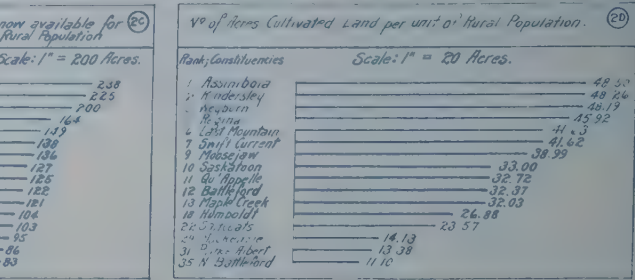 now available for 2C
Rural Population
Scale: 1" = 200 Acres.
238
225
200
164
149
138
136
127
125
122
121
104
103
95
86
83
Nº of Acres Cultivated Land per unit of Rural Population. 2D
Rank; Constituencies Scale: 1" = 20 Acres.
1 Assiniboia 48
Kindersley 48 26
Weyburn 48.19
Regina 45.92
6 Last Mountain 41
7 Swift Current 41.62
9 Moosejaw 38.99
10 Saskatoon 33.00
11 Qu'Appelle 32.72
12 Battleford 32.37
13 Maple Creek 32.03
18 Humboldt 26.88
22 23 57
14.13
Albert 13 38
35 N Battleford 11 10